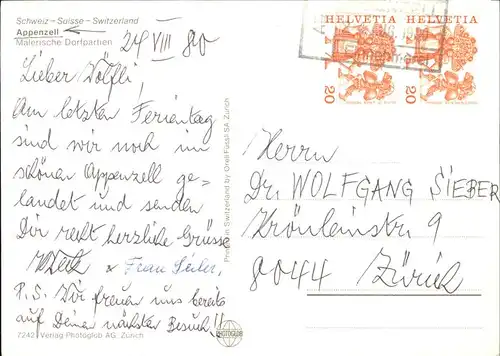 Schweiz – Suisse – Switzerland
Appenzell
Malerische Dorfpartien
24 VIII 80
Lieber Wölfli,
Am letzten Ferientag
sind wir noch im
schönen Appenzell ge=
landet und senden
Dir recht herzliche Grüsse
& Frau
P.S. Wir freuen uns bereits
auf Deinen nächsten Besuch!!
7242 Verlag Photoglob AG, Zürich
PHOTOGLOB
Printed in Switzerland by Orell Füssli SA Zürich
HELVETIA HELVETIA
20 20
Herrn
Dr. WOLFGANG SIEBER
Krönleinstr. 9
8044 Zürich